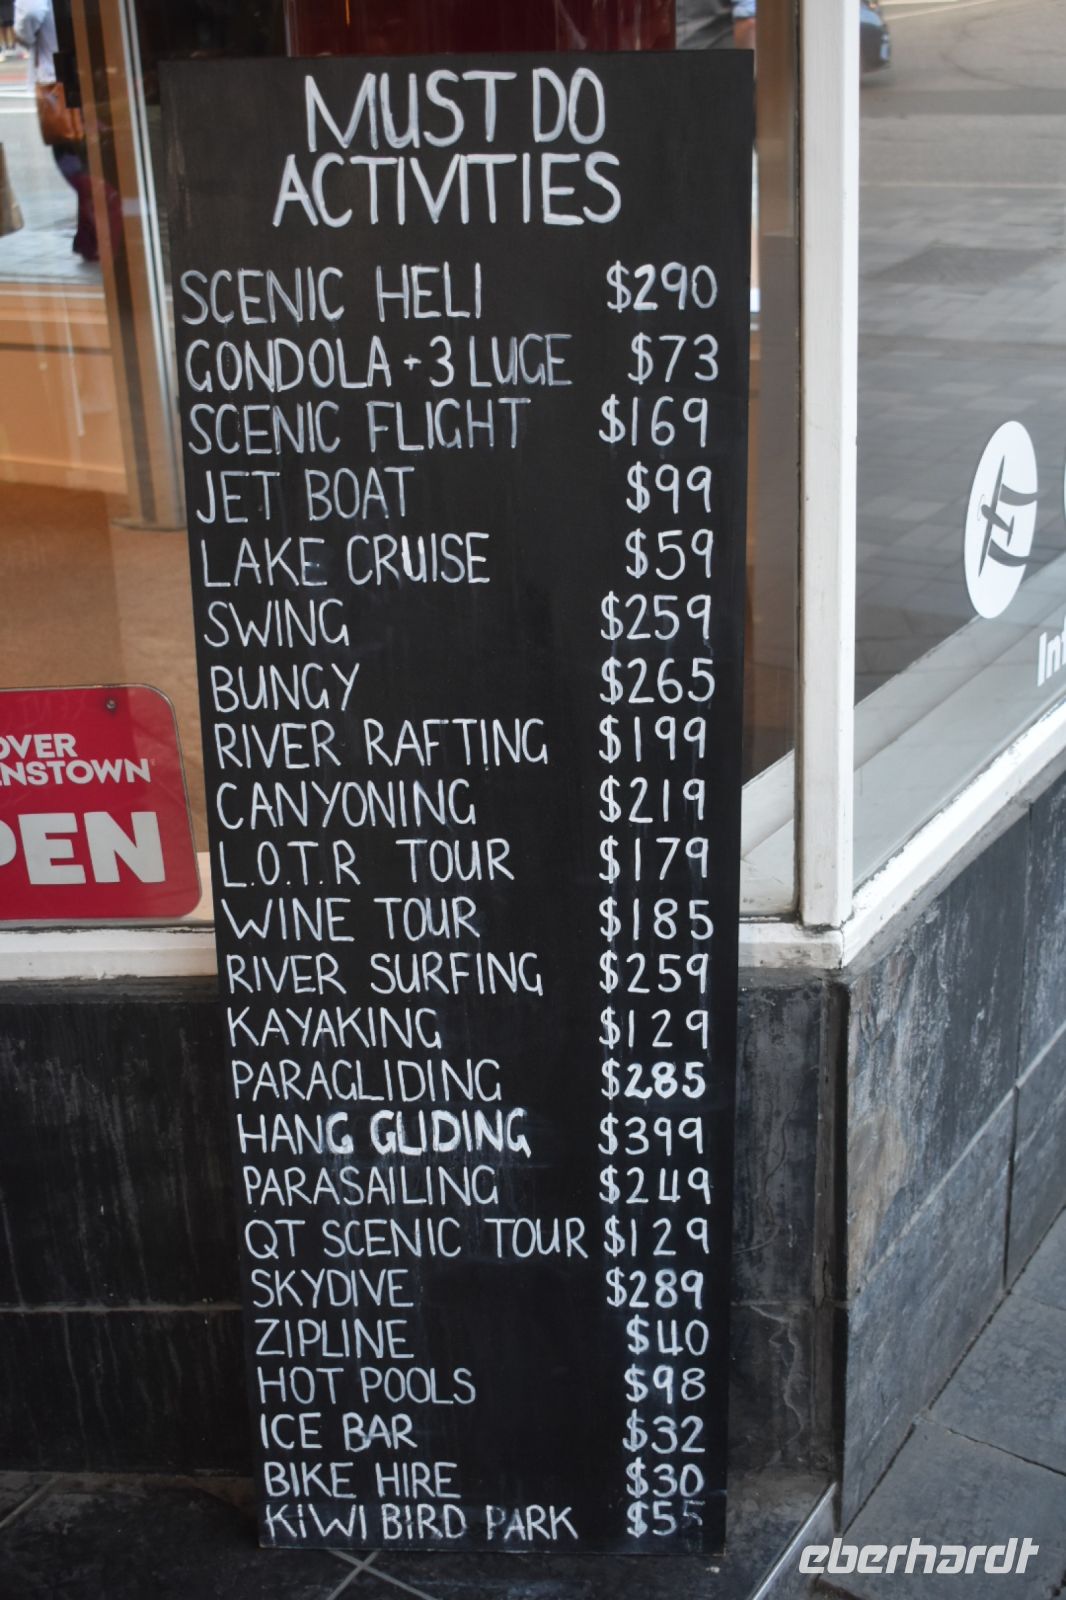 MUST DO
ACTIVITIES
SCENIC HELI $290
GONDOLA + 3 LUGE $73
SCENIC FLIGHT $169
JET BOAT $99
LAKE CRUISE $59
SWING $259
BUNGY $265
RIVER RAFTING $199
CANYONING $219
L.O.T.R TOUR $179
WINE TOUR $185
RIVER SURFING $259
KAYAKING $129
PARAGLIDING $285
HANG GLIDING $399
PARASAILING $249
QT SCENIC TOUR $129
SKYDIVE $289
ZIPLINE $40
HOT POOLS $98
ICE BAR $32
BIKE HIRE $30
KIWI BIRD PARK $55
OVER
ENSTOWN
PEN
In
eberhardt